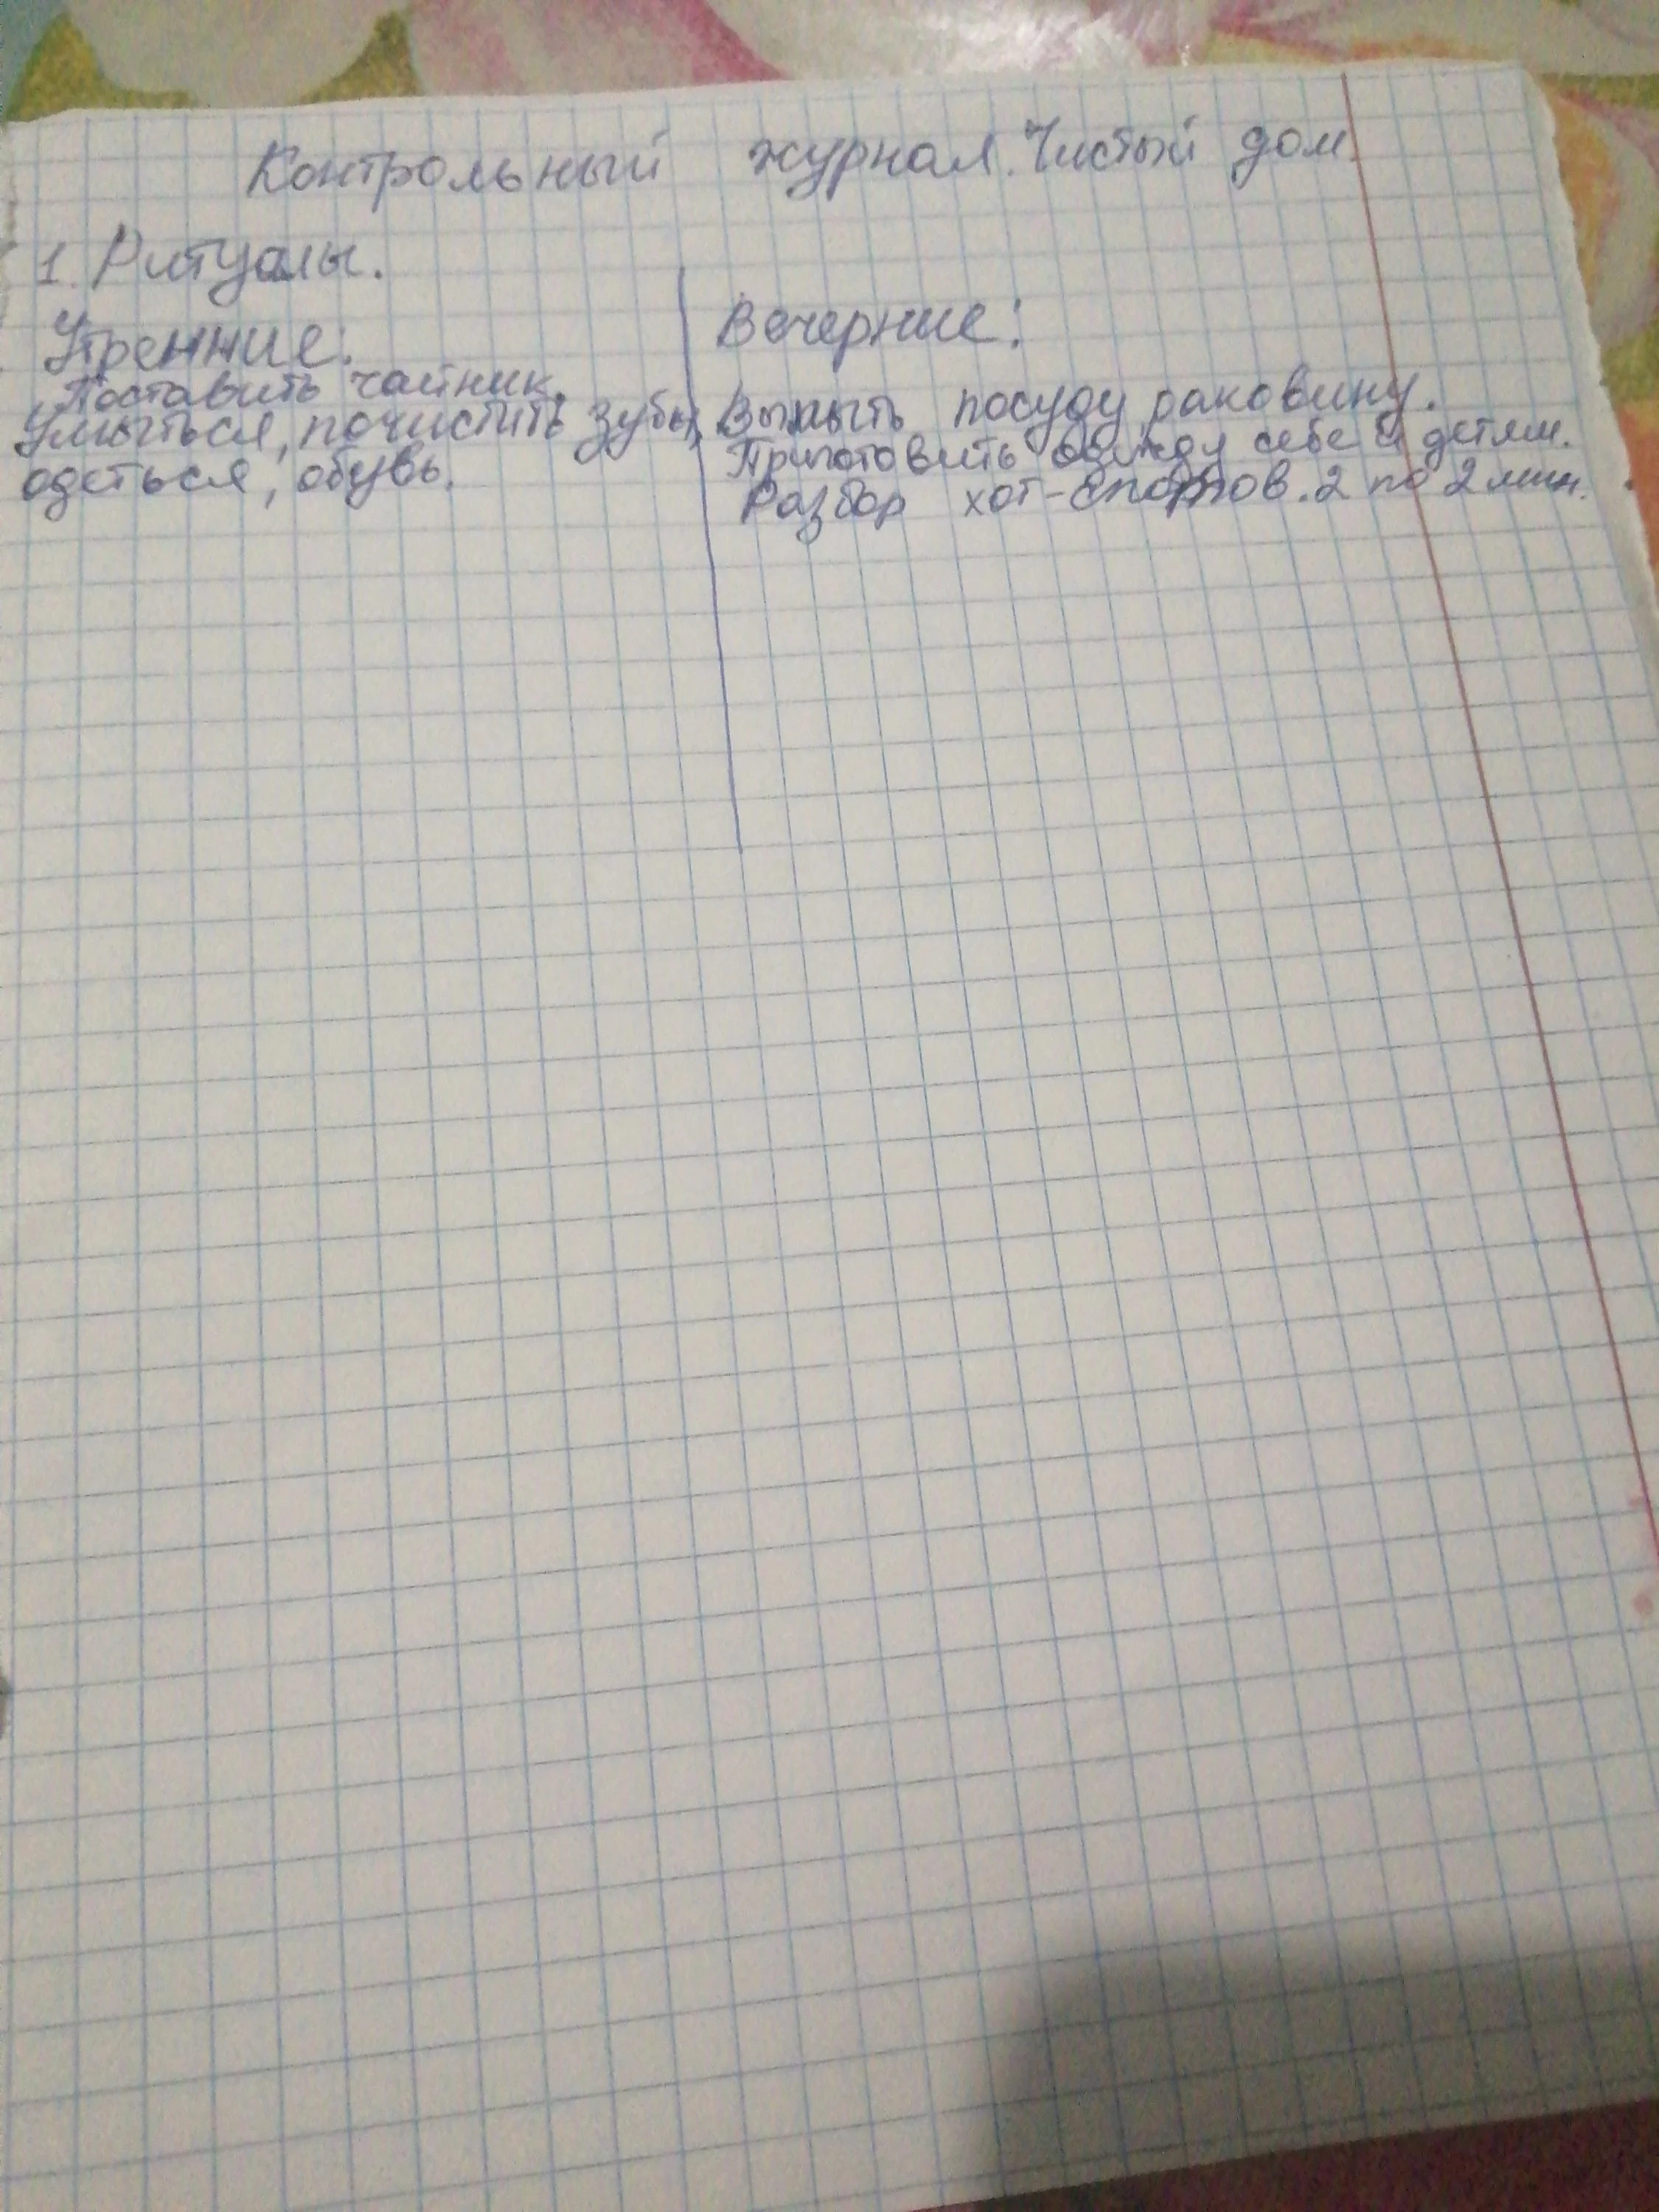 Контрольный журнал. Чистый дом.
1. Ритуалы.
Утренние:
Поставить чайник.
Умыться, почистить зубы,
одеться, обувь.
Вечерние:
Вымыть посуду, раковину.
Приготовить одежду себе и детям.
Разбор хот-спотов. 2 по 2 мин.